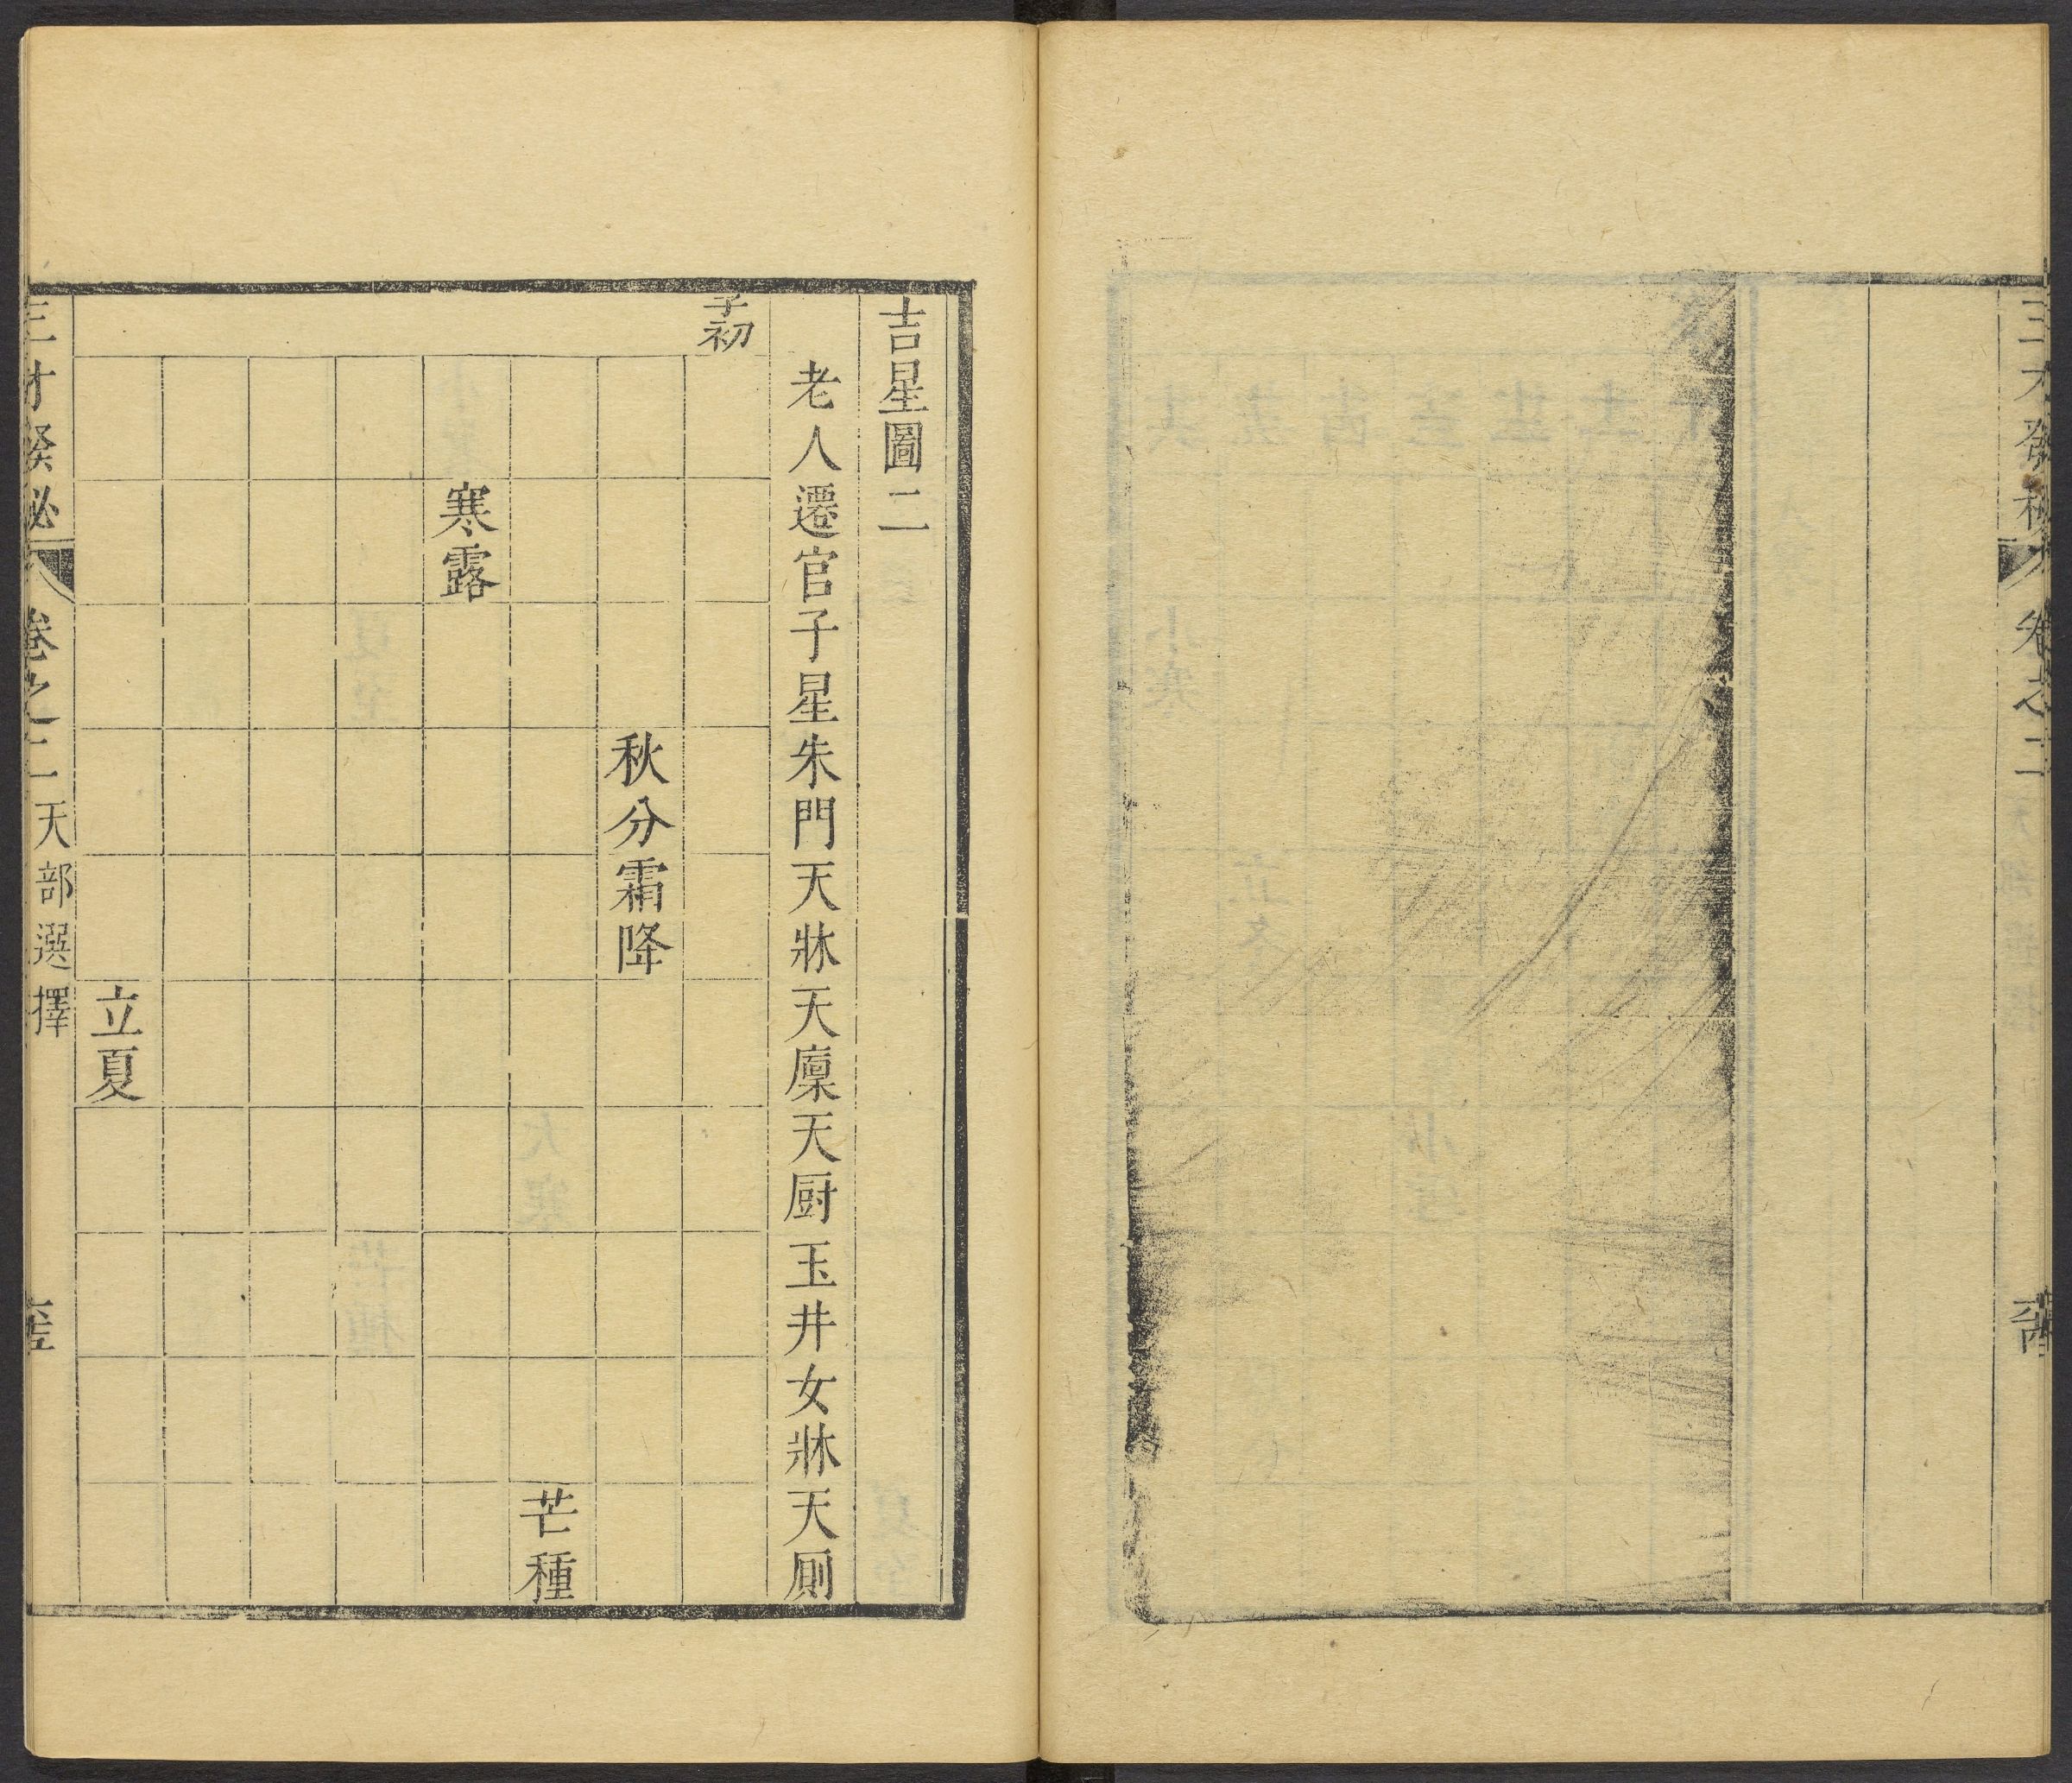 三才發秘 卷之二
吉星圖二
老人遷官子星朱門天牀天廩天厨玉井女牀天厠
子初
秋分霜降
芒種
寒露
立夏
三才發秘 卷之二 天部選擇